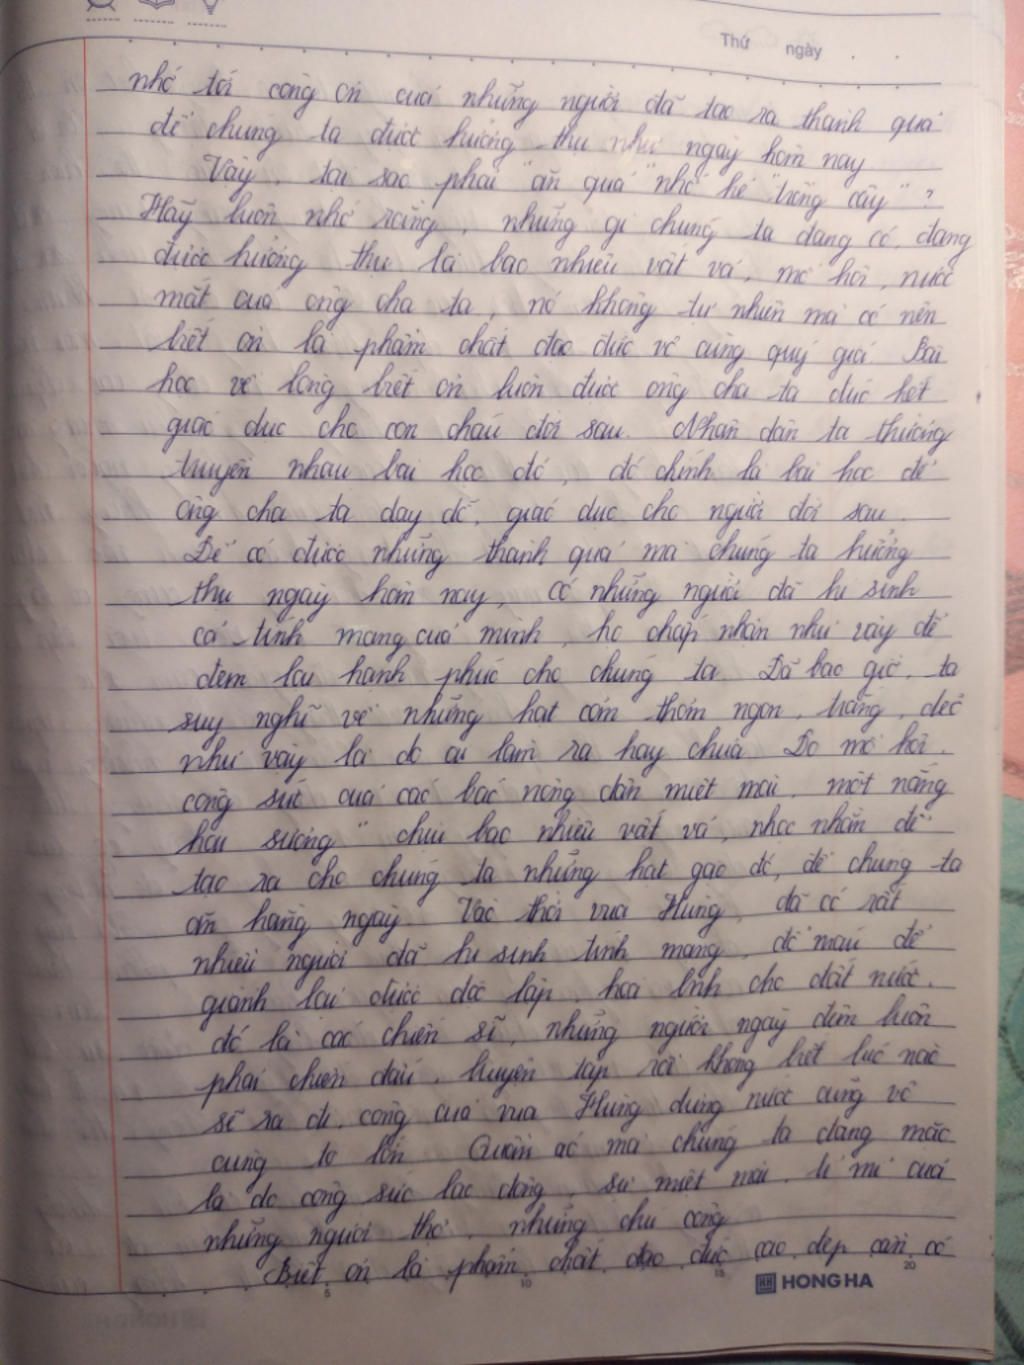 Thứ ngày
nhớ tới công ơn của những người đã tạo ra thành quả
để chúng ta được hưởng thụ như ngày hôm nay
Vậy, tại sao phải "ăn quả" nhớ kẻ "trồng cây" ?
Hãy luôn nhớ rằng, những gì chúng ta đang có, đang
được hưởng thụ là bao nhiêu vất vả, mồ hôi, nước
mắt của ông cha ta, nó không tự nhiên mà có nên
biết ơn là phẩm chất đạo đức vô cùng quý giá Bài
học về lòng biết ơn luôn được ông cha ta đúc kết
giáo dục cho con cháu đời sau. Nhân dân ta thường
truyền nhau bài học đó, đó chính là bài học để
ông cha ta dạy dỗ, giáo dục cho người đời sau.
Để có được những thành quả mà chúng ta hưởng
thụ ngày hôm nay, có những người đã hi sinh
cả tính mạng của mình, họ chấp nhận như vậy để
đem lại hạnh phúc cho chúng ta. Đã bao giờ, ta
suy nghĩ về những hạt cơm thơm ngon, trắng, dẻo
như vậy là do ai làm ra hay chưa. Do mồ hôi,
công sức của các bác nông dân miệt mài, một nắng
hai sương" chịu bao nhiêu vất vả, nhọc nhằn để
tạo ra cho chúng ta những hạt gạo đó, để chúng ta
ăn hằng ngày. Vào thời vua Hùng, đã có rất
nhiều người đã hi sinh tính mạng, đổ máu để
giành lại được độc lập, hoà bình cho đất nước.
đó là các chiến sĩ, những người ngày đêm luôn
phải chiến đấu, luyện tập rồi không biết lúc nào
sẽ ra đi, công của vua Hùng dựng nước cũng vô
cùng to lớn. Quần áo mà chúng ta đang mặc
là do công sức lao động, sự miệt mài, tỉ mỉ của
những người thợ, những chú công
Biết ơn là phẩm chất đạo đức cao đẹp cần có
5 10 15 20
HONG HA